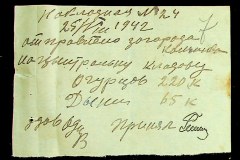 Накладная № 24
25/VIII 1942
отправлено с огорода
на центральну кладову
Огурцов 220 к
Дыни 65 к
Принял